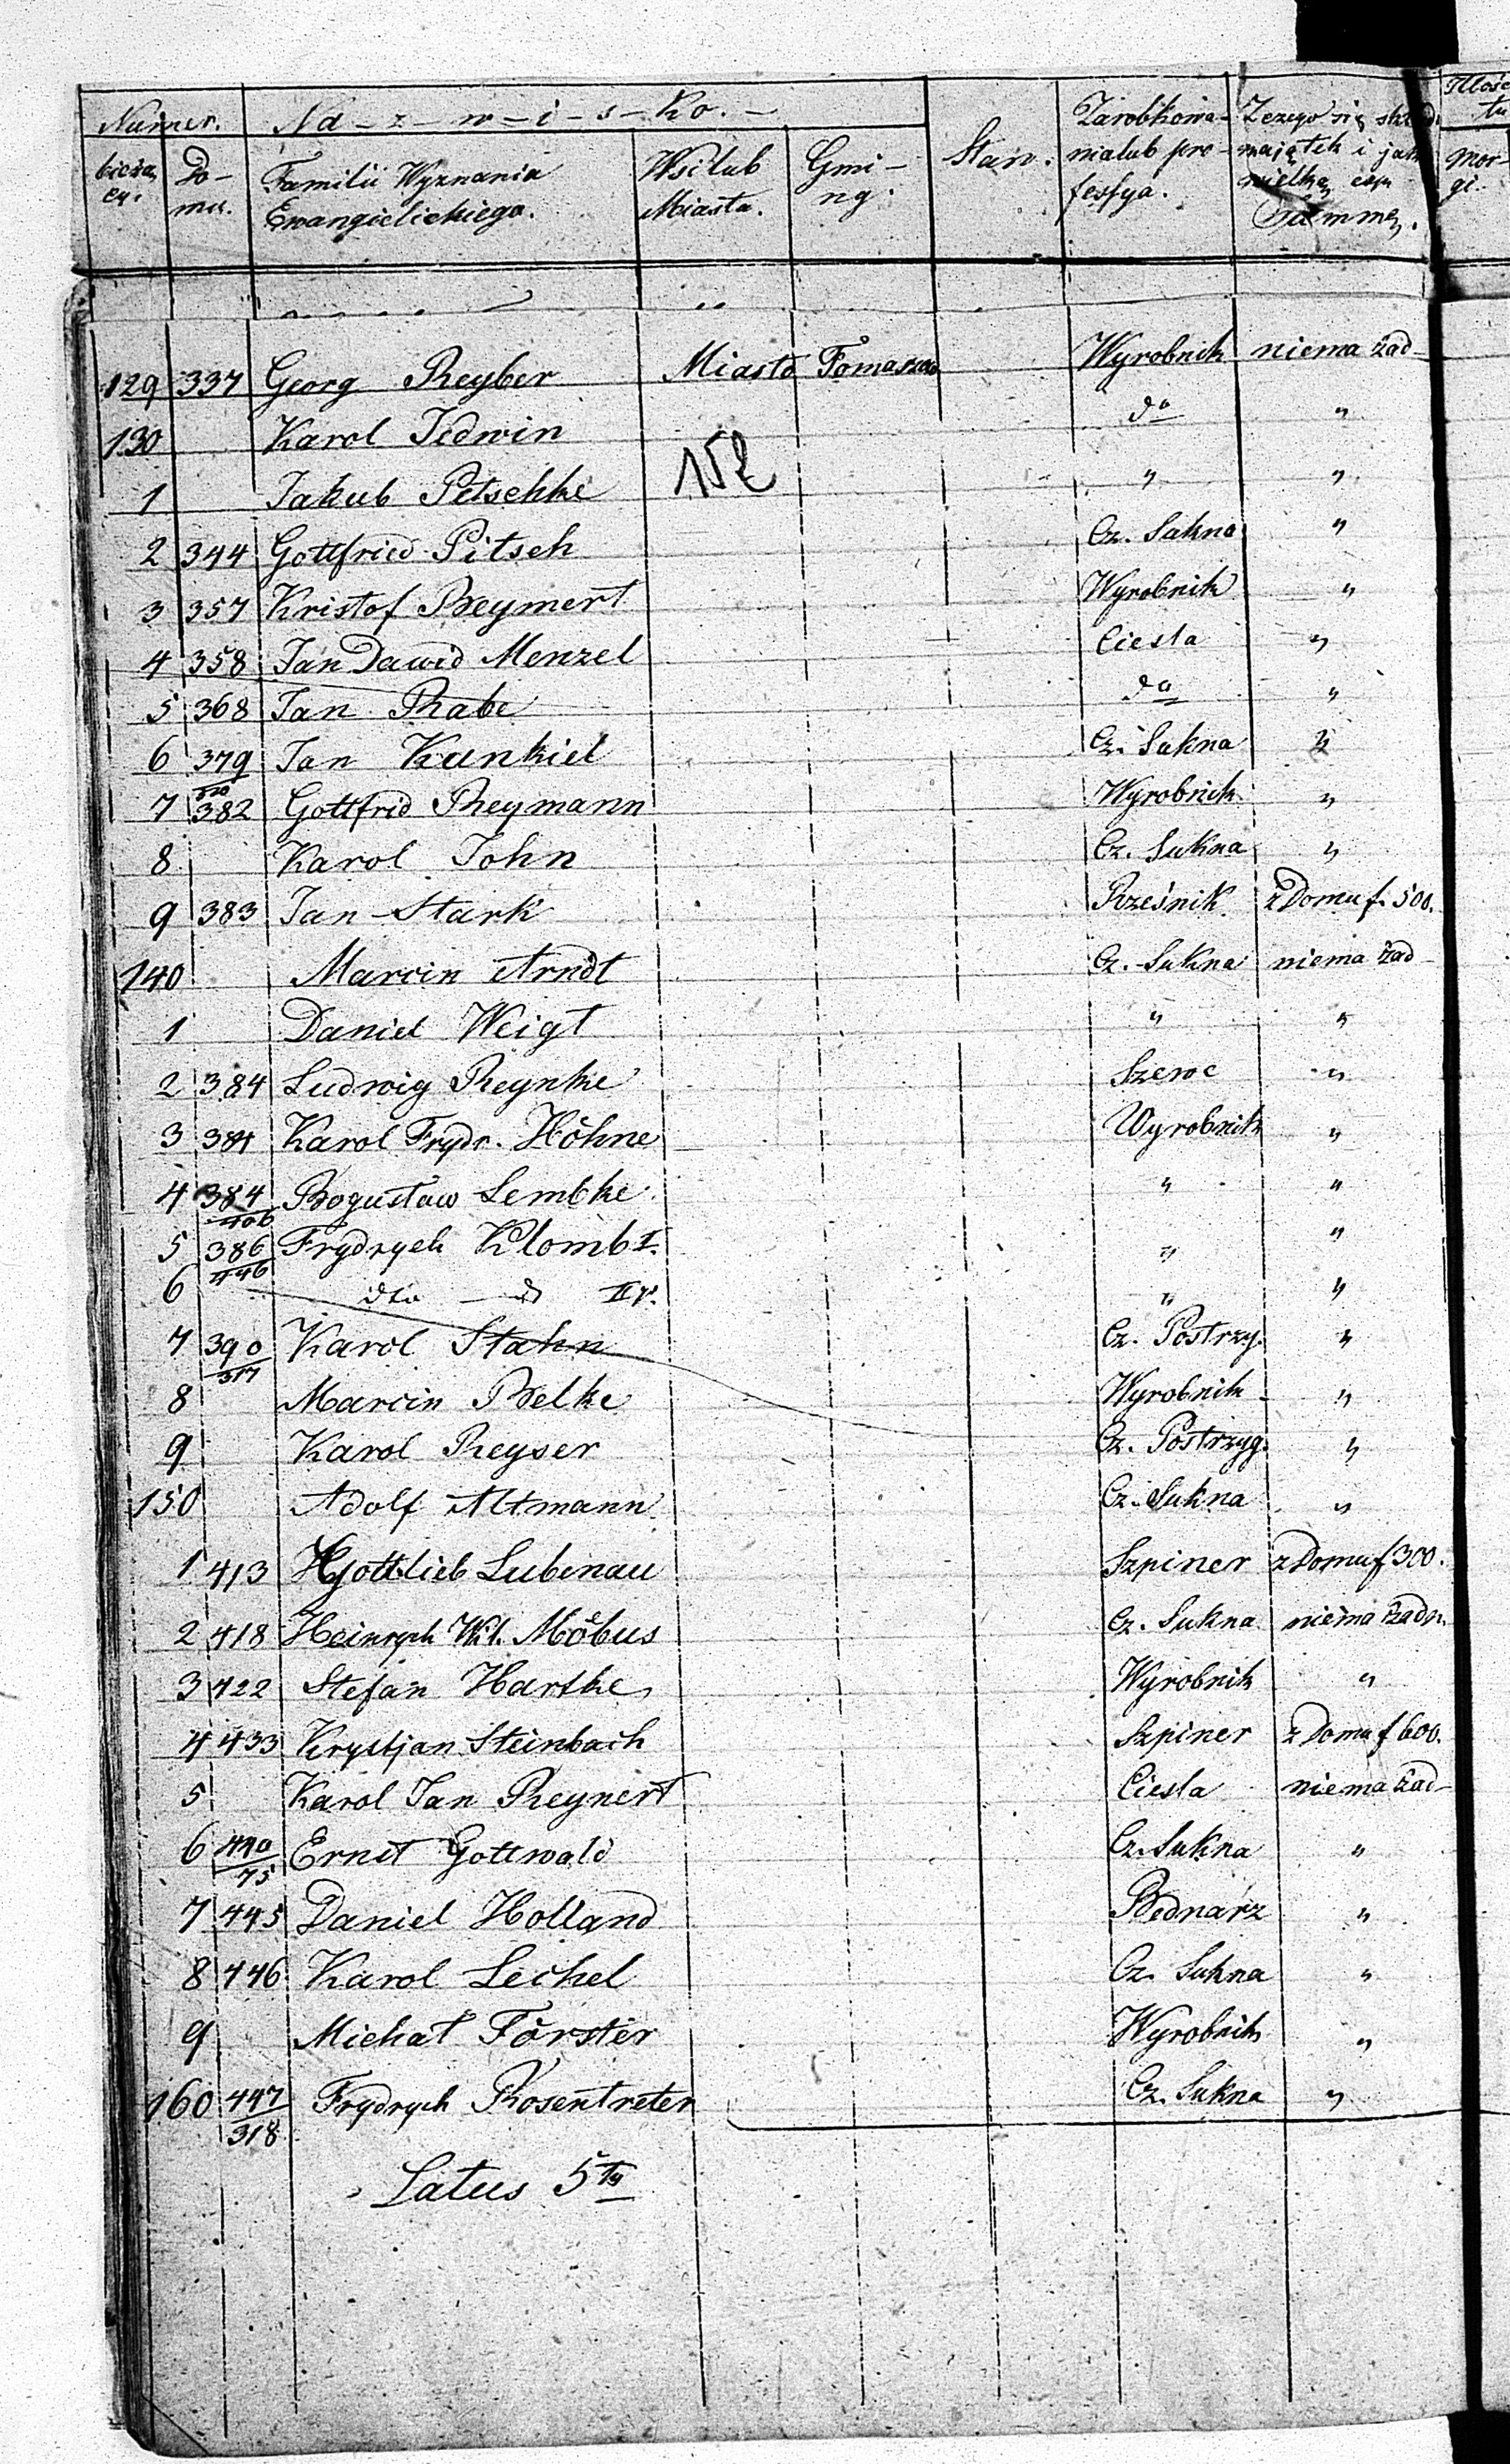 Numer. Na-z-w-i-s-ko.-
bieżą Do- Familii Wyznania Wsi lub Gmi- Stan. Zarobkowa- Z czego się skład Ilość
cy. mu. Ewangielickiego. Miasta. ny. nia lub pro- majątek i jak tu
fessya. wielką Summę. Mor-
gi.
129 337 Georg Reyber Miasto Tomaszow Wyrobnik niema żad-
130 Karol Jedwin do "
1 Jakub Petschke 152 " "
2 344 Gottfried Pitsch Cz. Sukna "
3 357 Kristof Beymert Wyrobnik "
4 358 Jan Dawid Menzel Ciesla "
5 368 Jan Rabe do "
6 379 Jan Kunkiel Cz. Sukna "
7 382 Gottfrid Reymann Wyrobnik "
8 Karol John Cz. Sukna "
9 383 Jan Stark Rześnik z Domu f. 500.
140 Marcin Arndt Cz. Sukna niema żad-
1 Daniel Weigt " "
2 384 Ludwig Reynke Szewc "
3 384 Karol Frydr. Höhne Wyrobnik "
4 384 Bogusław Lembke " "
5 386 Frydrych Klomb I. " "
446
6 dto do IIgi. " "
7 390 Karol Stahn Cz. Postrzy. "
317
8 Marcin Belke Wyrobnik "
9 Karol Reyser Cz. Postrzyg. "
150 Adolf Altmann Cz. Sukna "
1 413 Gottlieb Lubenau Szpiner z Domu f 300.
2 418 Heinrych Wil. Möbus Cz. Sukna niema żadn.
3 422 Stefan Hartke Wyrobnik "
4 433 Krystjan Steinbach Szpiner z Domu f 600.
5 Karol Jan Reynert Ciesla niema żad-
6 440 Ernst Gottwald Cz. Sukna "
75
7 445 Daniel Holland Bednarz "
8 446 Karol Lechel Cz. Sukna "
9 Michał Förster Wyrobnik "
160 447 Frydrych Rosentreter Cz. Sukna "
318
Latus 5ty